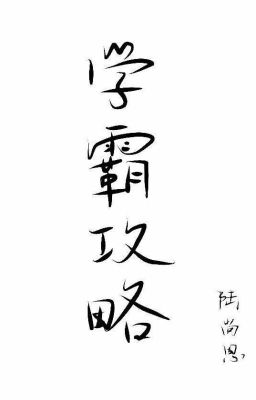 学霸攻略
陆尚恩